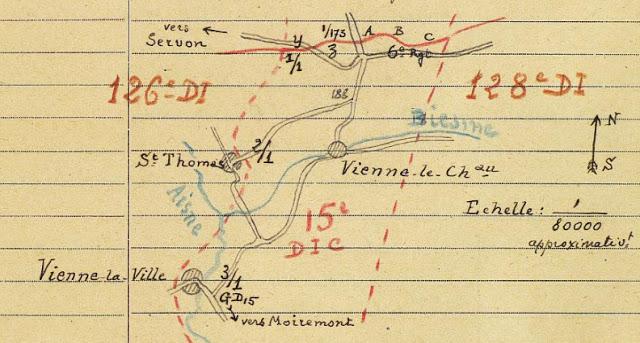 vers
Servon
Y
1/1
1/173
3
A
B
C
6e Rgt
126e DI
128e DI
188
Biesme
2/1
St Thomas
Vienne-le-Chau
N
S
Aisne
15e
DIC
Echelle: 1
80000
approximativt
Vienne-la-Ville
3/1
GD15
vers Moiremont